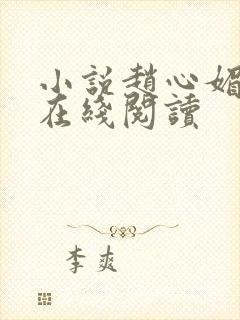 小説趙心媚
在綫閱讀
李爽